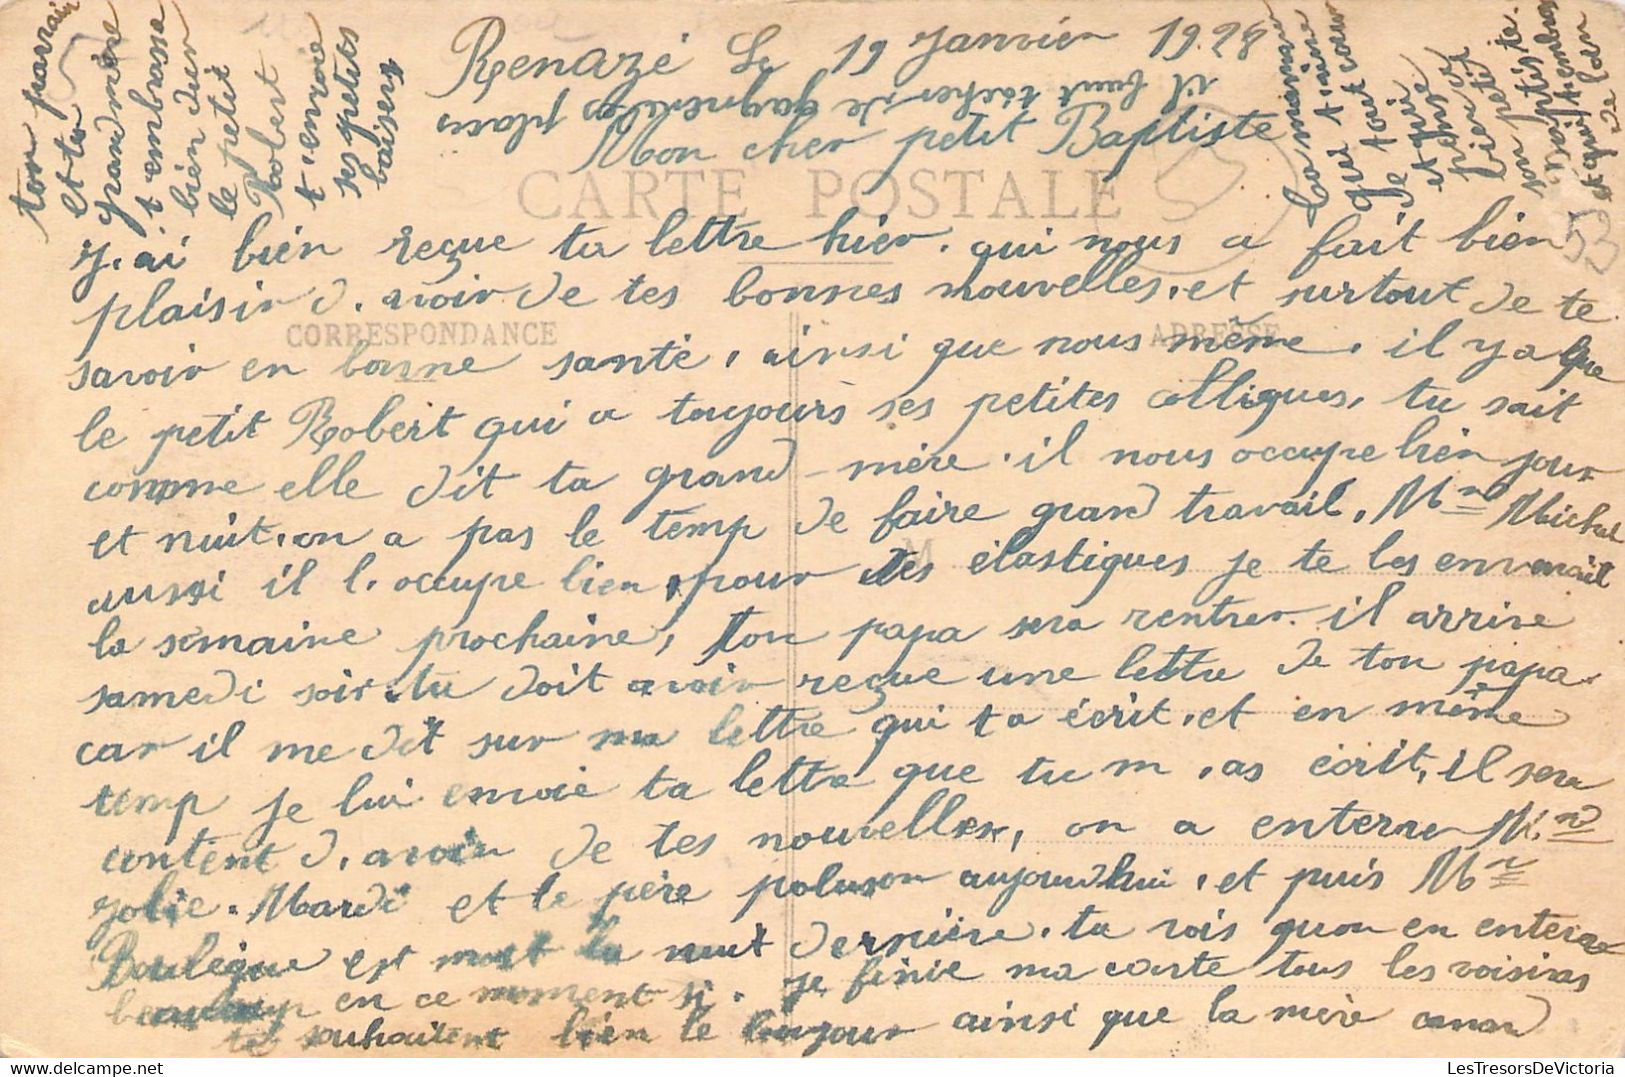 Renazé Le 19 Janvier 1928
il faut tâcher de gagner des places
Mon cher petit Baptiste
CARTE POSTALE
J.ai bien reçue ta lettre hier. qui nous a fait bien
plaisir d.avoir de tes bonnes nouvelles, et surtout de te
CORRESPONDANCE
ADRESSE
savoir en bonne santé, ainsi que nous même, il y a que
le petit Robert qui a toujours ses petites colliques, tu sait
comme elle dit ta grand-mère. il nous occupe bien jour
et nuit, on a pas le temp de faire grand travail, Mr Michel
aussi il l.occupe bien, pour des élastiques je te les enverait
M
la semaine prochaine, ton papa sera rentrer. il arrive
samedi soir. tu doit avoir reçue une lettre de ton papa.
car il me dit sur ma lettre qui ta écrit, et en même
temp je lui envoie ta lettre que tu m,as écrit, il sera
content d.avoir de tes nouvelles, on a enterrer M.
Jolie. Mardi et le père poluson aujourdhui, et puis Mr
Boulégue est mort la nuit dernière. tu vois quon en enterre
beaucoup en ce moment si. je finie ma carte tous les voisines
te souhaitent bien le bonjour ainsi que la mère canard
ton parrain
et ta
grandmère
t'embrasse
bien dur
le petit
Robert
t'envoie
ses petits
baisers
ta maman
qui t'aime
de tout cœur
et qui
pense
bien
petit
son ptiste.
et qui t'embrasse
de loin
53
LesTresorsDeVictoria